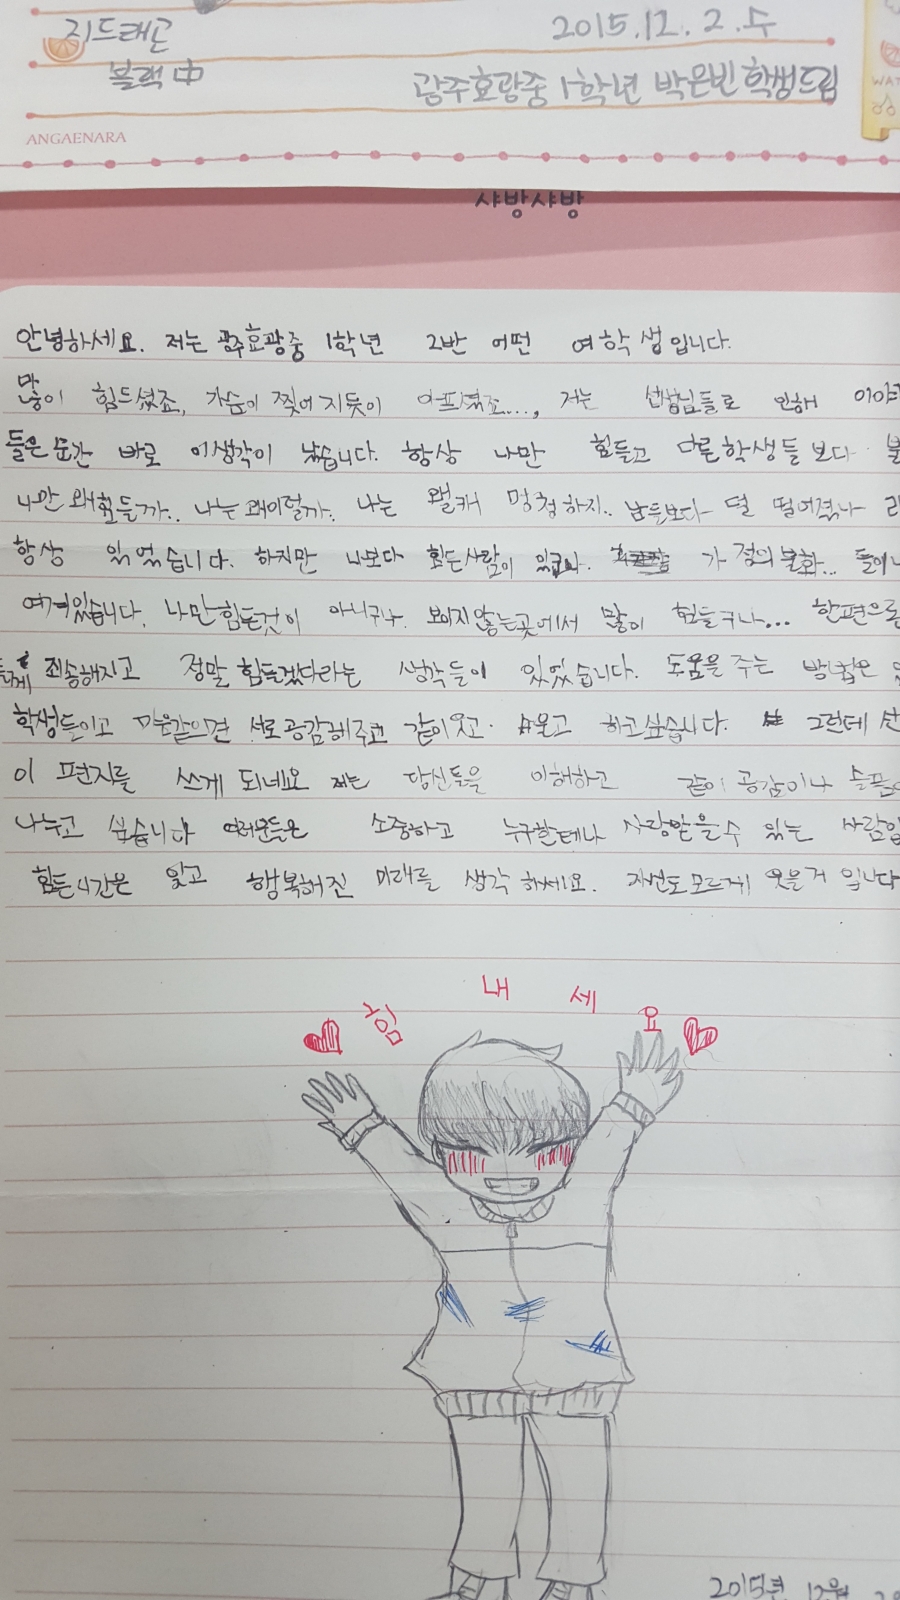 지드래곤
블랙 中
2015.12.2.수
광주효광중 1학년 박은빈 학생드림
WAT
ANGAENARA
샤방샤방
안녕하세요. 저는 광주효광중 1학년 2반 어떤 여학생입니다.
많이 힘드셨죠, 가슴이 찢어지듯이 아프셨죠...., 저는 선생님들로 인해 이야
들은순간 바로 이생각이 났습니다. 항상 나만 힘들고 다른학생들 보다 불
나만 왜힘들까.. 나는 왜이럴까. 나는 왤케 멍청하지.. 남들보다 덜 떨어졌나 라
항상 있었습니다. 하지만 나보다 힘든사람이 있구나. 가정의불화... 돌이
여겨있습니다. 나만힘든것이 아니구나. 보이지않는곳에서 많이 힘들구나... 한편으론
죄송해지고 정말 힘들겠다라는 생각들이 있었습니다. 도움을 주는 방법은
학생들이고 마음같으면 서로공감해주고 같이웃고 울고 하고싶습니다. 그런데
이 편지를 쓰게 되네요 저는 당신들을 이해하고 같이 공감이나 슬픔
나누고 싶습니다 여러분들은 소중하고 누구한테나 사랑받을수 있는 사람입
힘든시간은 잊고 행복해진 미래를 생각하세요. 자신도모르게 웃을거 입니다
힘 내 세 요
2015년 12월